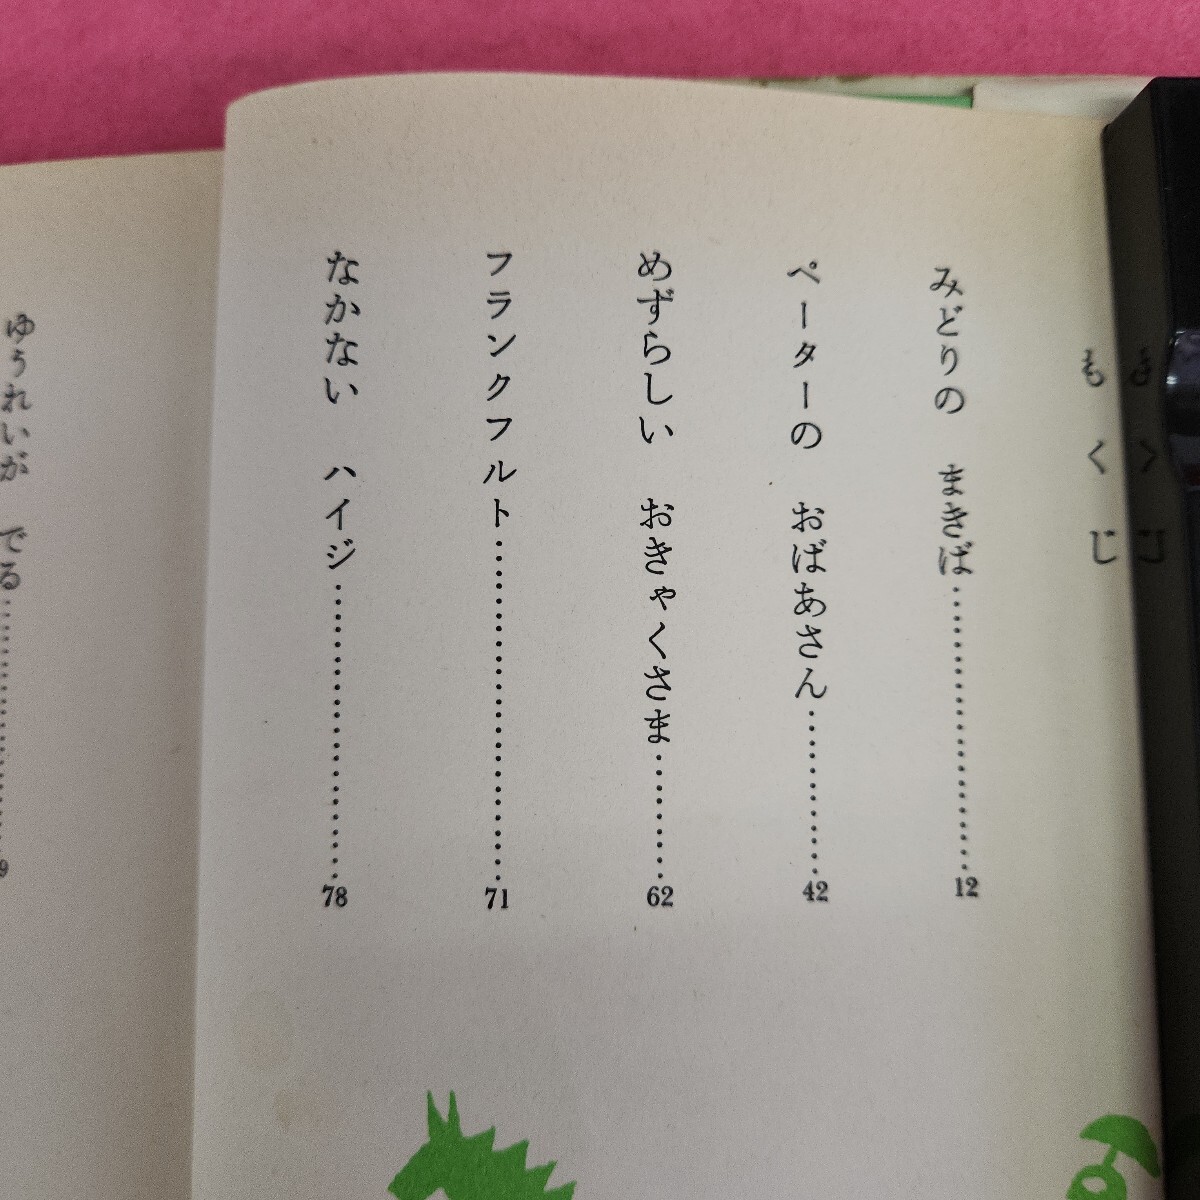 もくじ
みどりの　まきば……………………12
ペーターの　おばあさん……………42
めずらしい　おきゃくさま…………62
フランクフルト………………………71
なかない　ハイジ……………………78
ゆうれいが　でる……………………